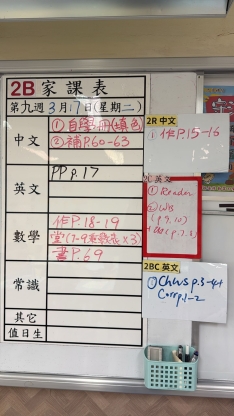 2B 家課表
第九週 3月17日(星期二)
中文
①自學冊(填色)
②補P.60-63
英文
PP p.17
數學
作P.18-19
堂(7-9乘數表×3)
書P.69
常識
其它
值日生
2R 中文
作P.15-16
2C 英文
① Reader
② WB
(p.9,10)
2BC 英文
① Ch WS p.3-4+
Corr p.1-2